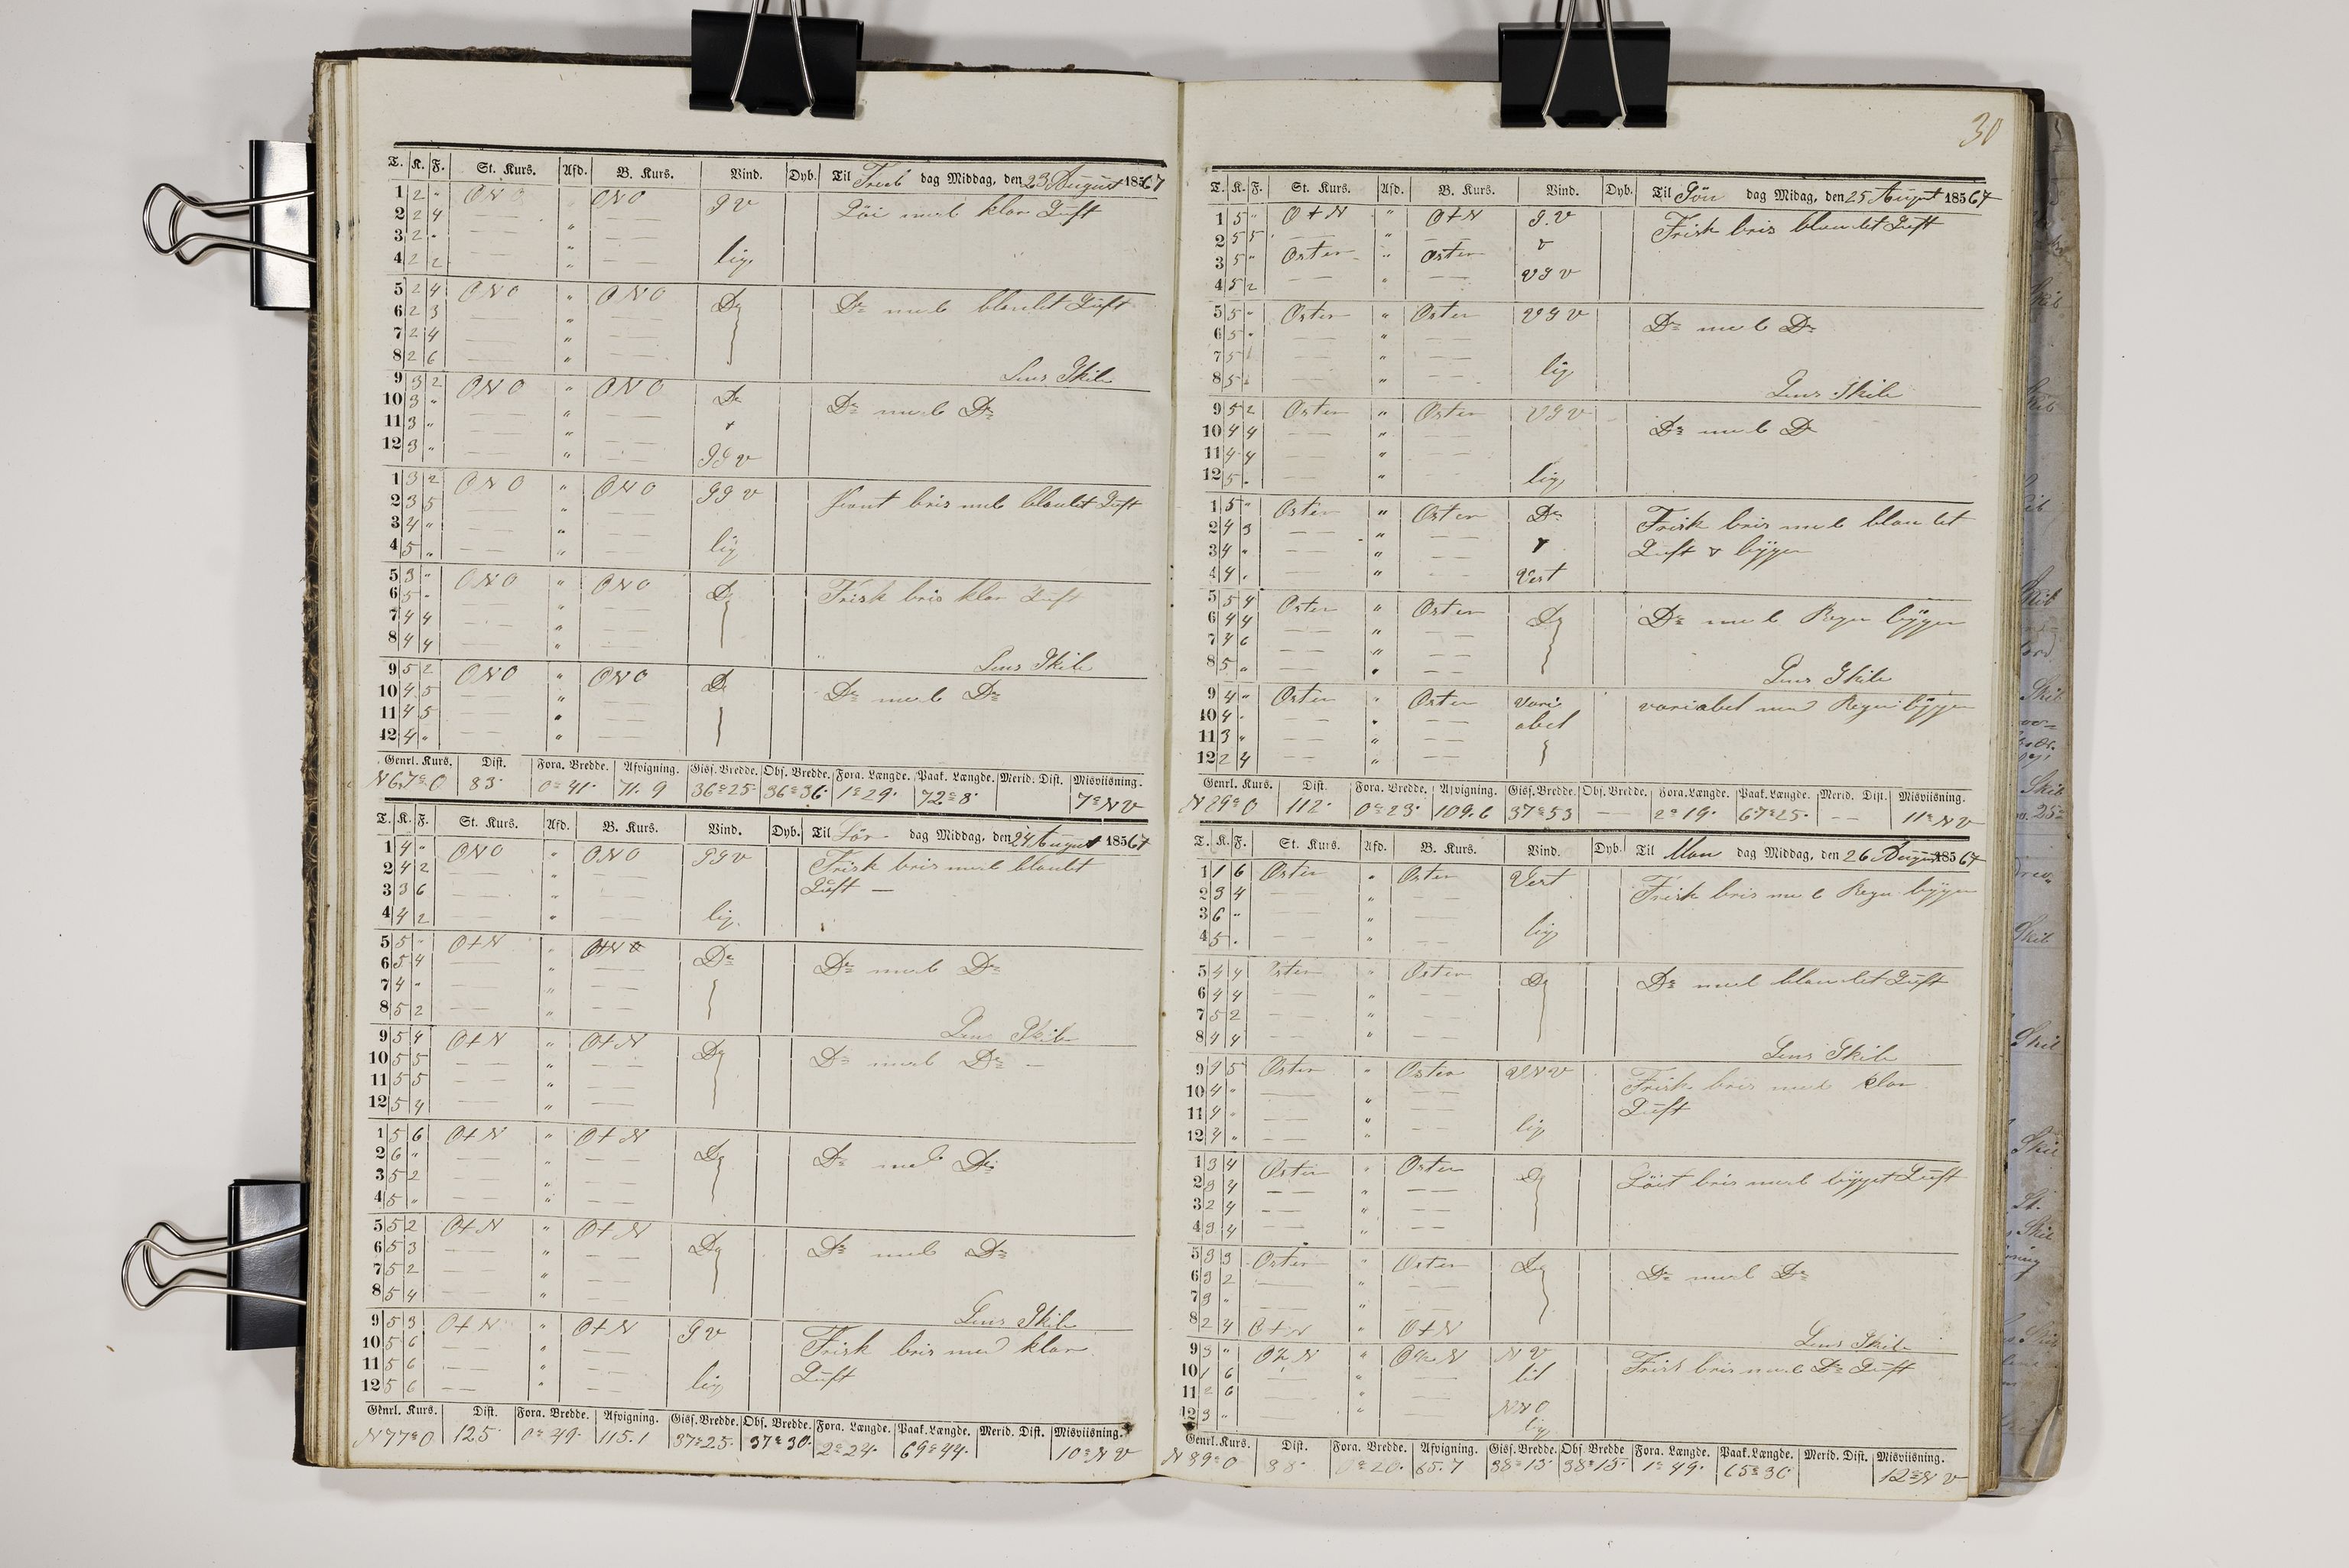 30
T. K. F. St. Kurs. Afd. B. Kurs. Vind. Dyb. Til Fred dag Middag, den 23 August 1867
1 2 " ONO ONO S V Löi med klar Luft
2 2 4 — — " — —
3 2 " — — " — —
4 2 2 — — " — — lig
5 2 4 ONO " ONO Do Do med blandet Luft
6 2 3 — — " — —
7 2 4 — — " — —
8 2 6 — — " — — Lens Skib
9 3 2 ONO " ONO Do Do med Do
10 3 " — — " — —
11 3 " — — " — —
12 3 " — — " — — S S V
1 3 2 ONO " ONO S S V bris med blandet Luft
2 3 5 — — " — —
3 4 " — — " — —
4 5 " — — " — — lig
5 3 " ONO " ONO Do Frisk bris klar Luft
6 5 " — — " — —
7 4 4 — — " — —
8 4 4 — — " — — Lens Skib
9 5 2 ONO " ONO Do Do med Do
10 4 5 — — " — —
11 4 5 — — " — —
12 4 " — — " — —
Genrl. Kurs. Dist. Fora. Bredde. Afvigning. Gisf. Bredde. Obs. Bredde. Fora. Længde. Paak. Længde. Merid. Dist. Misviisning.
N 67° O 83 0° 41 71.9 36° 25 36° 36 1° 29 72° 8 7° N V
T. K. F. St. Kurs. Afd. B. Kurs. Vind. Dyb. Til Lör dag Middag, den 24 August 1867
1 4 " ONO " ONO S S V Frisk bris med blandet
2 4 2 — — " — — Luft —
3 3 6 — — " — —
4 4 2 — — " — — lig
5 5 " O t N " O t N Do Do med Do
6 5 4 — — " — —
7 4 " — — " — —
8 5 2 — — " — — Lens Skib
9 5 4 O t N " O t N Do Do med Do —
10 5 5 — — " — —
11 5 5 — — " — —
12 5 4 — — " — —
1 5 6 O t N " O t N Do Do med Do
2 6 " — — " — —
3 5 2 — — " — —
4 5 " — — " — —
5 5 2 O t N " O t N Do Do med Do
6 5 3 — — " — —
7 5 2 — — " — —
8 5 4 — — " — — Lens Skib
9 5 3 O t N " O t N S V Frisk bris med klar
10 5 6 — — " — — Luft
11 5 6 — — " — —
12 5 6 — — " — — lig
Genrl. Kurs. Dist. Fora. Bredde. Afvigning. Gisf. Bredde. Obs. Bredde. Fora. Længde. Paak. Længde. Merid. Dist. Misviisning.
N 77° O 125 0° 49 115.1 37° 25 37° 30 2° 24 69° 44 10° N V
T. K. F. St. Kurs. Afd. B. Kurs. Vind. Dyb. Til Sön dag Midag, den 25 August 1867
1 5 " O t N " O t N S. V Frisk bris blandet Luft
2 5 5 — — " — — v
3 5 " Osten " Osten
4 5 2 — — " — — V S V
5 5 " Osten " Osten V S V Do med Do
6 5 " — — " — —
7 5 — — " — — lig
8 5 — — " — — Lens Skib
9 5 2 Osten " Osten V S V Do med Do
10 4 4 — — " — —
11 4 4 — — " — —
12 5 " — — " — — lig
1 5 " Osten " Osten Do Frisk bris med blandet
2 4 3 — — " — — v Luft v byger
3 4 " — — " — —
4 4 " — — " — — Vest
5 5 4 Osten " Osten Do Do med Regn byger
6 4 4 — — " — —
7 4 6 — — " — —
8 5 " — — " — — Lens Skib
9 4 " Osten " Osten vari variabel med Regn byger
10 4 " — — " — — abel
11 3 " — — " — —
12 2 4 — — " — —
Genrl. Kurs. Dist. Fora. Bredde. Afvigning. Gisf. Bredde. Obs. Bredde. Fora. Længde. Paak. Længde. Merid. Dist. Misviisning.
112 0° 23 109.6 37° 53 — 2° 19 67° 25 — — 11° N V
T. K. F. St. Kurs. Afd. B. Kurs. Vind. Dyb. Til Man dag Middag, den 26 August 1867
1 1 6 Osten " Osten Vest Frisk bris med Regn byger
2 3 4 — — " — —
3 6 " — — " — —
4 5 " — — " — — lig
5 4 4 Osten " Osten Do Do med blandet Luft
6 4 4 — — " — —
7 5 2 — — " — —
8 4 4 — — " — — Lens Skib
9 5 Osten " Osten V N V Frisk bris med klar
10 4 " — — " — — Luft
11 4 " — — " — —
12 4 " — — " — — lig
1 3 4 Osten " Osten Do Löit bris med bygget Luft
2 3 4 — — " — —
3 2 4 — — " — —
4 3 4 — — " — —
5 3 3 Osten " Osten Do Do med Do
6 3 2 — — " — —
7 3 " — — " — —
8 2 4 O t N " O t N Lens Skib
9 3 " " N V Frisk bris med Do Luft
10 1 6 — — " — — til
11 2 6 — — " — —
12 3 " " — — N N O
lig
Genrl. Kurs. Dist. Fora. Bredde. Afvigning. Gisf. Bredde. Obs. Bredde Fora. Længde. Paak. Længde. Merid. Dist. Misviisning.
N 89° O 88 0° 20 65.7 38° 13 38° 15 1° 49 65° 36 12° N V